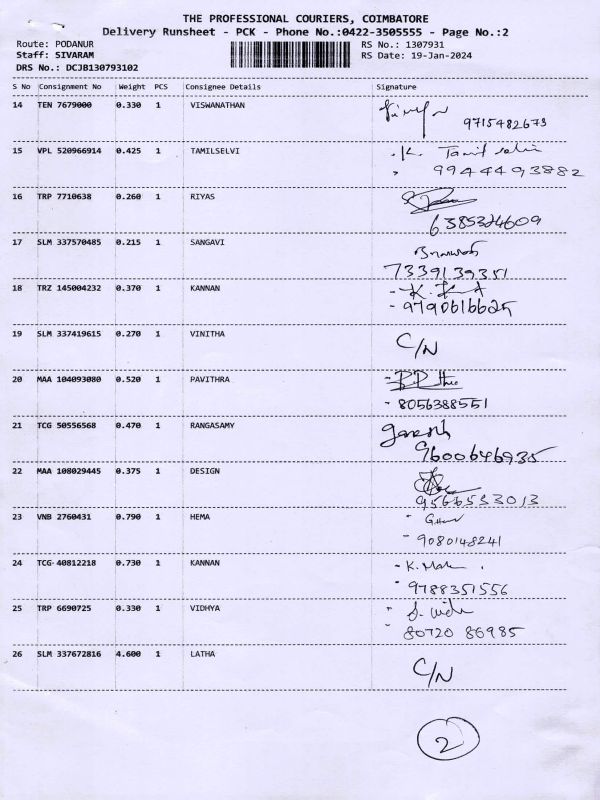 THE PROFESSIONAL COURIERS, COIMBATORE
Delivery Runsheet - PCK - Phone No.:0422-3505555 - Page No.:2
Route: PODANUR RS No.: 1307931
Staff: SIVARAM RS Date: 19-Jan-2024
DRS No.: DCJB130793102
S No Consignment No Weight PCS Consignee Details Signature
14 TEN 7679000 0.330 1 VISWANATHAN
9715482673
15 VPL 520966914 0.425 1 TAMILSELVI K. Tamil selvi
9944493882
16 TRP 7710638 0.260 1 RIYAS
6385324609
17 SLM 337570485 0.215 1 SANGAVI
7339139351
18 TRZ 145004232 0.370 1 KANNAN
9790616625
19 SLM 337419615 0.270 1 VINITHA
C/N
20 MAA 104093080 0.520 1 PAVITHRA
- 8056388551
21 TCG 50556568 0.470 1 RANGASAMY ganesh
9600646935
22 MAA 108029445 0.375 1 DESIGN
9566533013
23 VNB 2760431 0.790 1 HEMA
- 9080148241
24 TCG 40812218 0.730 1 KANNAN
9788351556
25 TRP 6690725 0.330 1 VIDHYA
80720 86985
26 SLM 337672816 4.600 1 LATHA
C/N
2